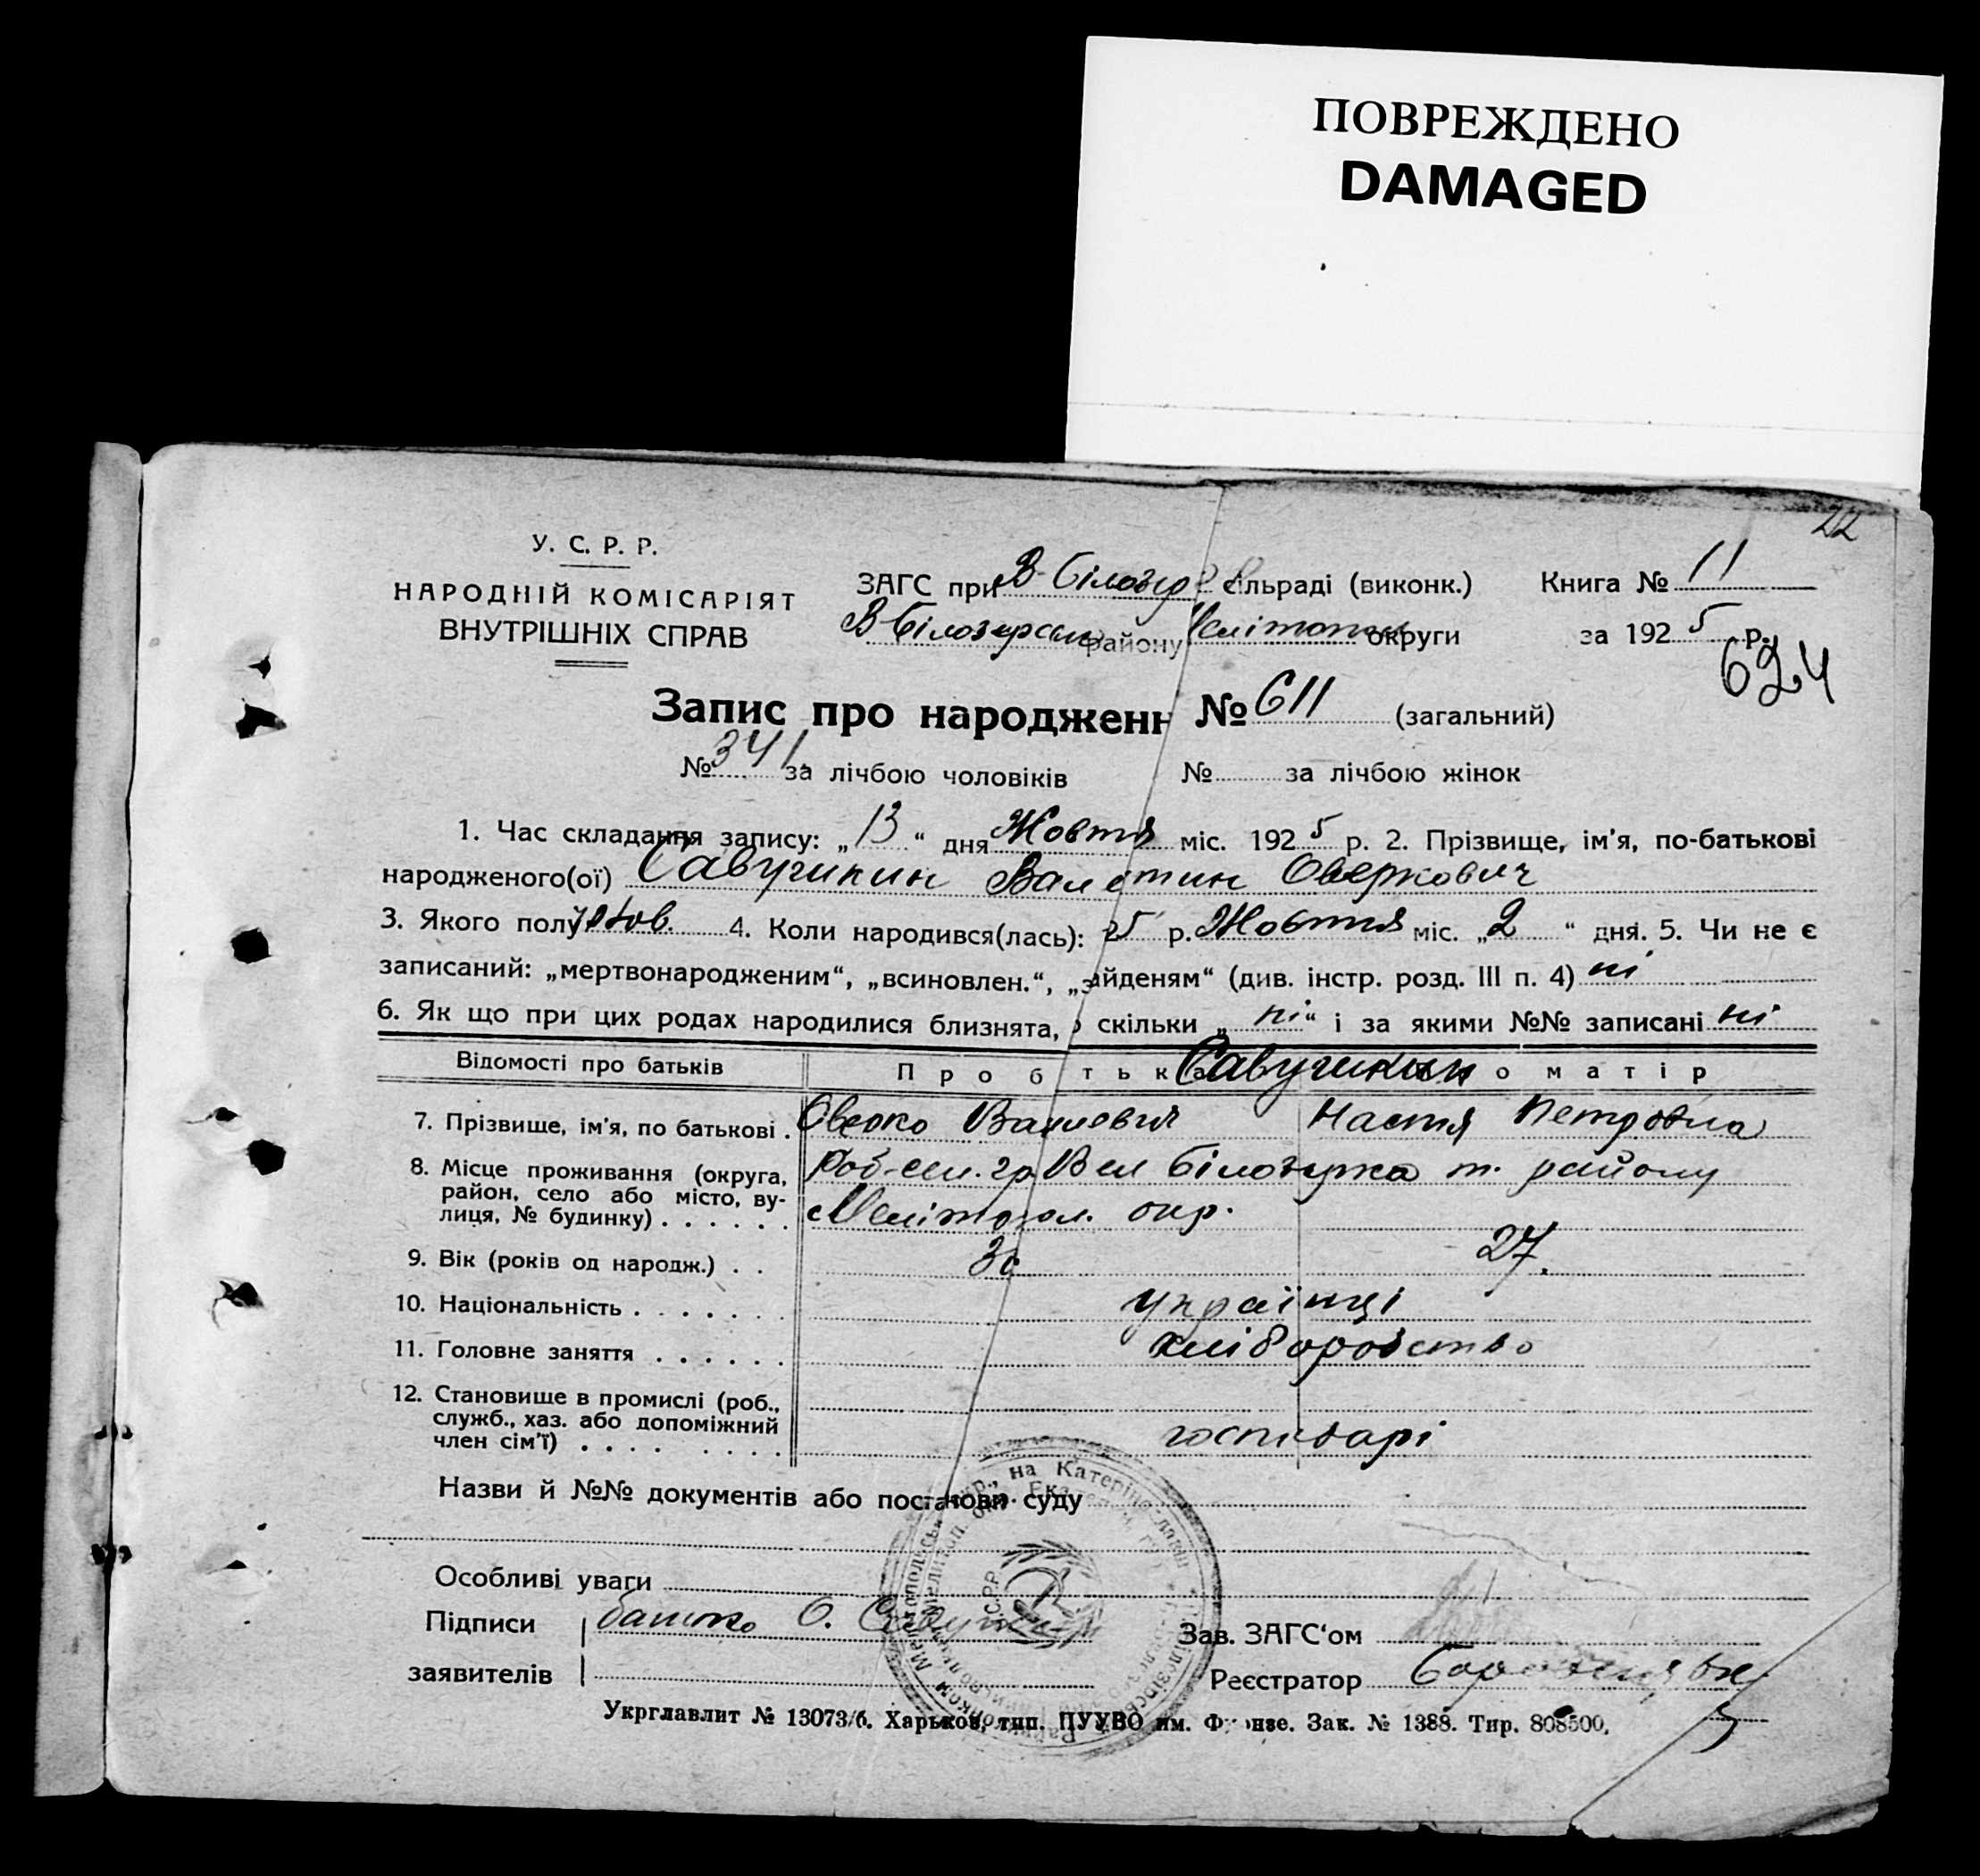 ПОВРЕЖДЕНО
DAMAGED
22
У. С. Р. Р.
НАРОДНІЙ КОМІСАРІЯТ
ВНУТРІШНІХ СПРАВ
ЗАГС при В-Білозер сільраді (виконк.) Книга № 11
В-Білозерськ району Мелітопол округи за 1925 р.
624
Запис про народженн № 611 (загальний)
№ 341 за лічбою чоловіків № за лічбою жінок
1. Час складання запису: „13“ дня Жовтня міс. 1925 р. 2. Прізвище, ім'я, по-батькові
народженого(ої) Савучикин Валетин Оверкович
3. Якого полу чов. 4. Коли народився(лась): 25 р. Жовтня міс. „2“ дня. 5. Чи не є
записаний: „мертвонародженим“, „всиновлен.“, „знайденям“ (див. інстр. розд. III п. 4) ні
6. Як що при цих родах народилися близнята, скільки „ні“ і за якими №№ записані ні
Відомості про батьків Про батька Савучикин Про матір
7. Прізвище, ім'я, по батькові . Оверко Настя Петровна
8. Місце проживання (округа, Вел Білозерка т. району
район, село або місто, ву- Мелітопол. окр.
лиця, № будинку) . . . . . .
9. Вік (років од народж.) . . 30 27.
10. Національність . . . . . . . українці
11. Головне заняття . . . . . . хліборобство
12. Становище в промислі (роб.,
служб., хаз. або допоміжний господарі
член сім'ї) . . . . . . . .
Назви й №№ документів або постанови суду
Особливі уваги
Підписи батько О. Зав. ЗАГС'ом
заявителів Реєстратор
Укрглавлит № 13073/б. Харьков, тип. ПУУВО им. Фрунзе. Зак. № 1388. Тир. 808500.